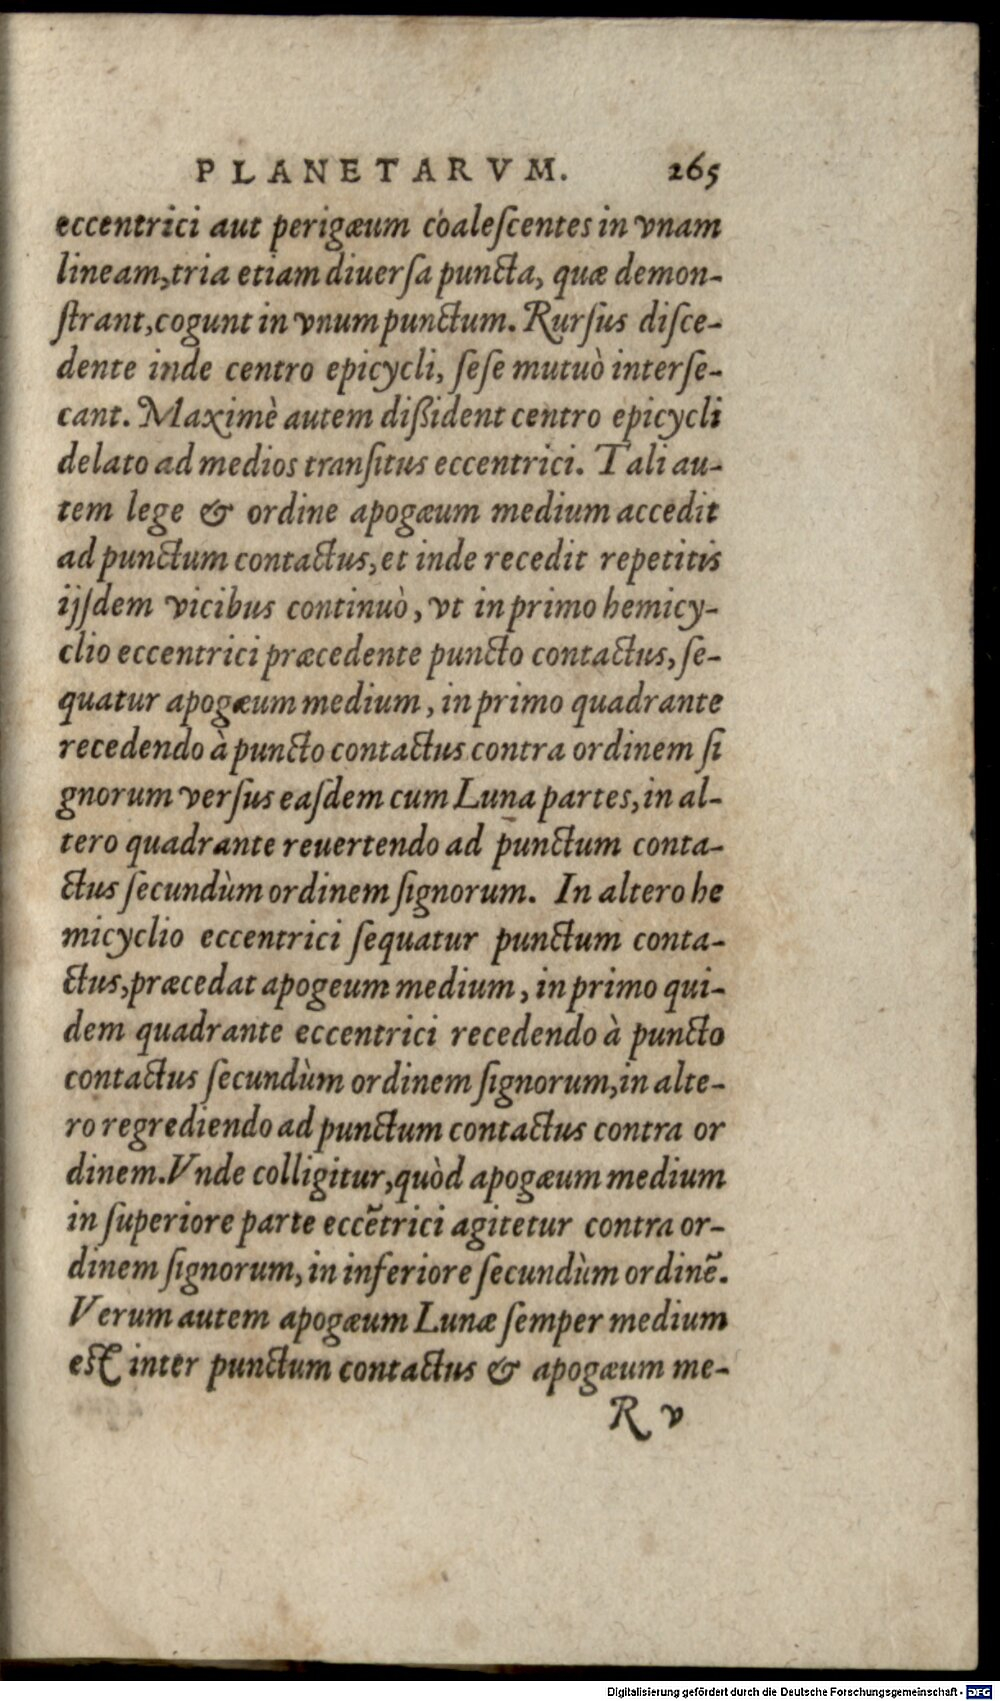 PLANETARVM. 265
eccentrici aut perigæum coaleſcentes in vnam
lineam,tria etiam diuerſa puncta, quæ demon-
ſtrant,cogunt in vnum punctum. Rurſus diſce-
dente inde centro epicycli, ſeſe mutuò interſe-
cant. Maximè autem diſſident centro epicycli
delato ad medios tranſitus eccentrici. Tali au-
tem lege & ordine apogæum medium accedit
ad punctum contactus,et inde recedit repetitis
ijſdem vicibus continuò, vt in primo hemicy-
clio eccentrici præcedente puncto contactus, ſe-
quatur apogæum medium, in primo quadrante
recedendo à puncto contactus contra ordinem ſi
gnorum verſus eaſdem cum Luna partes,in al-
tero quadrante reuertendo ad punctum conta-
ctus ſecundùm ordinem ſignorum. In altero he
micyclio eccentrici ſequatur punctum conta-
ctus,præcedat apogeum medium, in primo qui-
dem quadrante eccentrici recedendo à puncto
contactus ſecundùm ordinem ſignorum,in alte-
ro regrediendo ad punctum contactus contra or
dinem.Vnde colligitur,quòd apogæum medium
in ſuperiore parte eccẽtrici agitetur contra or-
dinem ſignorum, in inferiore ſecundùm ordinẽ.
Verum autem apogæum Lunæ ſemper medium
eſt inter punctum contactus & apogæum me-
R v
Digitalisierung gefördert durch die Deutsche Forschungsgemeinschaft - DFG